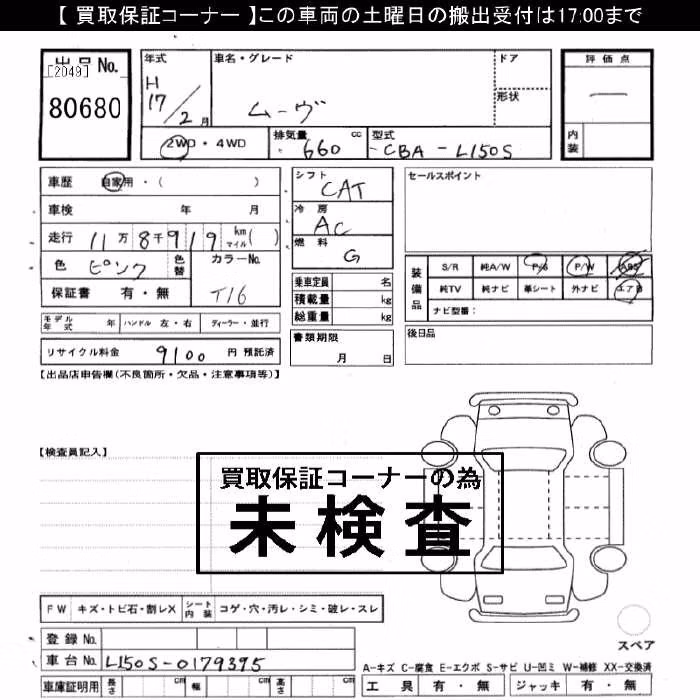 【 買取保証コーナー 】この車両の土曜日の搬出受付は17:00まで
出品 No.
[2049]
80680
年式
H
17/2月
車名・グレード
ムーヴ
ドア
形状
評価点
一
内装
2WD・4WD
排気量 cc
660
型式
-CBA-L150S
車歴 自家用・( )
車検 年 月
走行 11万8千919 km マイル( )
色 ピンク 色替
カラーNo.
T16
保証書 有・無
シフト
CAT
冷房
AC
燃料
G
乗車定員 名
積載量 kg
総重量 kg
セールスポイント
装備品
S/R 純A/W P/S P/W ABS
純TV 純ナビ 革シート 外ナビ エアB
ナビ型番:
モデル年式 年 ハンドル 左・右 ディーラー・並行
リサイクル料金 9100 円 預託済
書類期限
月 日
後日品
【出品店申告欄(不良箇所・欠品・注意事項等)】
【検査員記入】
買取保証コーナーの為
未検査
FW キズ・トビ石・割レX シート内装 コゲ・穴・汚レ・シミ・破レ・スレ
登録 No.
車台 No. L150S-0179375
車庫証明用 長さ cm 幅 cm 高さ cm
スペア
A-キズ C-腐食 E-エクボ S-サビ U-凹ミ W-補修 XX-交換済
工具 有・無 ジャッキ 有・無